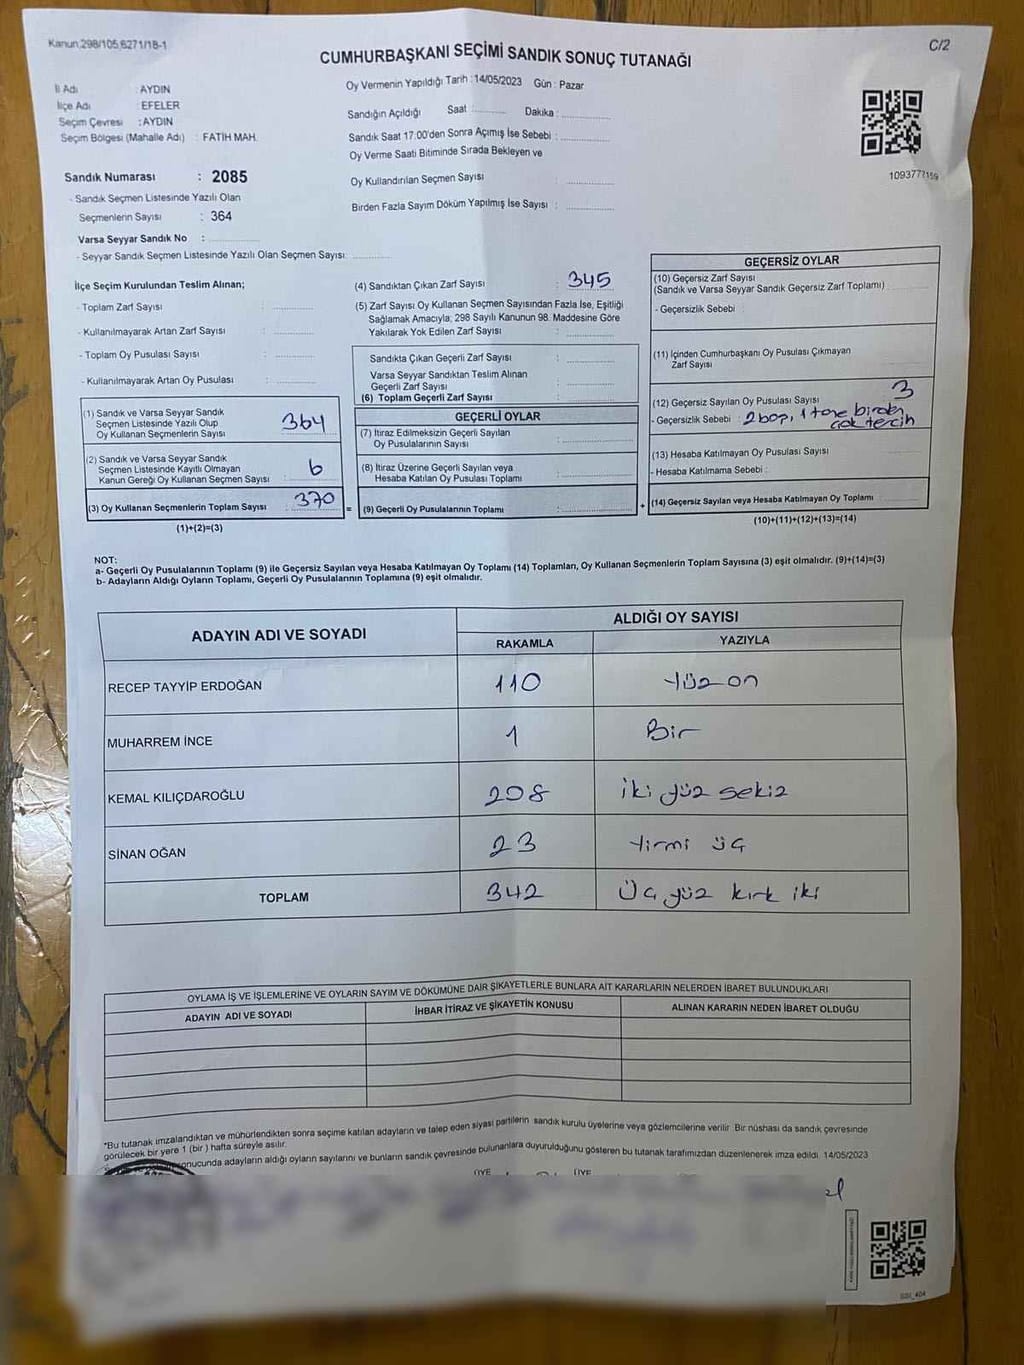 Kanun:298/105,6271/18-1
C/2
CUMHURBAŞKANI SEÇİMİ SANDIK SONUÇ TUTANAĞI
İl Adı : AYDIN
İlçe Adı : EFELER
Seçim Çevresi : AYDIN
Seçim Bölgesi (Mahalle Adı) : FATİH MAH.
Oy Vermenin Yapıldığı Tarih : 14/05/2023 Gün : Pazar
Sandığın Açıldığı Saat Dakika :
Sandık Saat 17:00'den Sonra Açımış İse Sebebi :
Oy Verme Saati Bitiminde Sırada Bekleyen ve
Oy Kullandırılan Seçmen Sayısı :
Birden Fazla Sayım Döküm Yapılmış İse Sayısı :
Sandık Numarası : 2085
- Sandık Seçmen Listesinde Yazılı Olan
Seçmenlerin Sayısı : 364
Varsa Seyyar Sandık No :
- Seyyar Sandık Seçmen Listesinde Yazılı Olan Seçmen Sayısı:
İlçe Seçim Kurulundan Teslim Alınan;
- Toplam Zarf Sayısı :
- Kullanılmayarak Artan Zarf Sayısı :
- Toplam Oy Pusulası Sayısı :
- Kullanılmayarak Artan Oy Pusulası :
(1) Sandık ve Varsa Seyyar Sandık
Seçmen Listesinde Yazılı Olup
Oy Kullanan Seçmenlerin Sayısı : 364
(2) Sandık ve Varsa Seyyar Sandık
Seçmen Listesinde Kayıtlı Olmayan
Kanun Gereği Oy Kullanan Seçmen Sayısı : 6
(3) Oy Kullanan Seçmenlerin Toplam Sayısı : 370
(1)+(2)=(3)
(4) Sandıktan Çıkan Zarf Sayısı : 345
(5) Zarf Sayısı Oy Kullanan Seçmen Sayısından Fazla İse, Eşitliği
Sağlamak Amacıyla; 298 Sayılı Kanunun 98. Maddesine Göre
Yakılarak Yok Edilen Zarf Sayısı :
Sandıkta Çıkan Geçerli Zarf Sayısı :
Varsa Seyyar Sandıktan Teslim Alınan
Geçerli Zarf Sayısı :
(6) Toplam Geçerli Zarf Sayısı :
GEÇERLİ OYLAR
(7) İtiraz Edilmeksizin Geçerli Sayılan
Oy Pusulalarının Sayısı :
(8) İtiraz Üzerine Geçerli Sayılan veya
Hesaba Katılan Oy Pusulası Toplamı :
= (9) Geçerli Oy Pusulalarının Toplamı : +
GEÇERSİZ OYLAR
(10) Geçersiz Zarf Sayısı
(Sandık ve Varsa Seyyar Sandık Geçersiz Zarf Toplamı)
- Geçersizlik Sebebi :
(11) İçinden Cumhurbaşkanı Oy Pusulası Çıkmayan
Zarf Sayısı
(12) Geçersiz Sayılan Oy Pusulası Sayısı 3
- Geçersizlik Sebebi : 2 boş, 1 tane birden
çok tercih
(13) Hesaba Katılmayan Oy Pusulası Sayısı
- Hesaba Katılmama Sebebi :
(14) Geçersiz Sayılan veya Hesaba Katılmayan Oy Toplamı
(10)+(11)+(12)+(13)=(14)
NOT:
a- Geçerli Oy Pusulalarının Toplamı (9) ile Geçersiz Sayılan veya Hesaba Katılmayan Oy Toplamı (14) Toplamları, Oy Kullanan Seçmenlerin Toplam Sayısına (3) eşit olmalıdır. (9)+(14)=(3)
b- Adayların Aldığı Oyların Toplamı, Geçerli Oy Pusulalarının Toplamına (9) eşit olmalıdır.
ADAYIN ADI VE SOYADI ALDIĞI OY SAYISI
RAKAMLA YAZIYLA
RECEP TAYYİP ERDOĞAN 110 Yüz on
MUHARREM İNCE 1 Bir
KEMAL KILIÇDAROĞLU 208 iki yüz sekiz
SİNAN OĞAN 23 Yirmi üç
TOPLAM 342 Üç yüz kırk iki
OYLAMA İŞ VE İŞLEMLERİNE VE OYLARIN SAYIM VE DÖKÜMÜNE DAİR ŞİKAYETLERLE BUNLARA AİT KARARLARIN NELERDEN İBARET BULUNDUKLARI
ADAYIN ADI VE SOYADI İHBAR İTİRAZ VE ŞİKAYETİN KONUSU ALINAN KARARIN NEDEN İBARET OLDUĞU
*Bu tutanak imzalandıktan ve mühürlendikten sonra seçime katılan adayların ve talep eden siyasi partilerin sandık kurulu üyelerine veya gözlemcilerine verilir. Bir nüshası da sandık çevresinde
görülecek bir yere 1 (bir) hafta süreyle asılır.
sonucunda adayların aldığı oyların sayılarını ve bunların sandık çevresinde bulunanlara duyurulduğunu gösteren bu tutanak tarafımızdan düzenlenerek imza edildi. 14/05/2023
ÜYE ÜYE